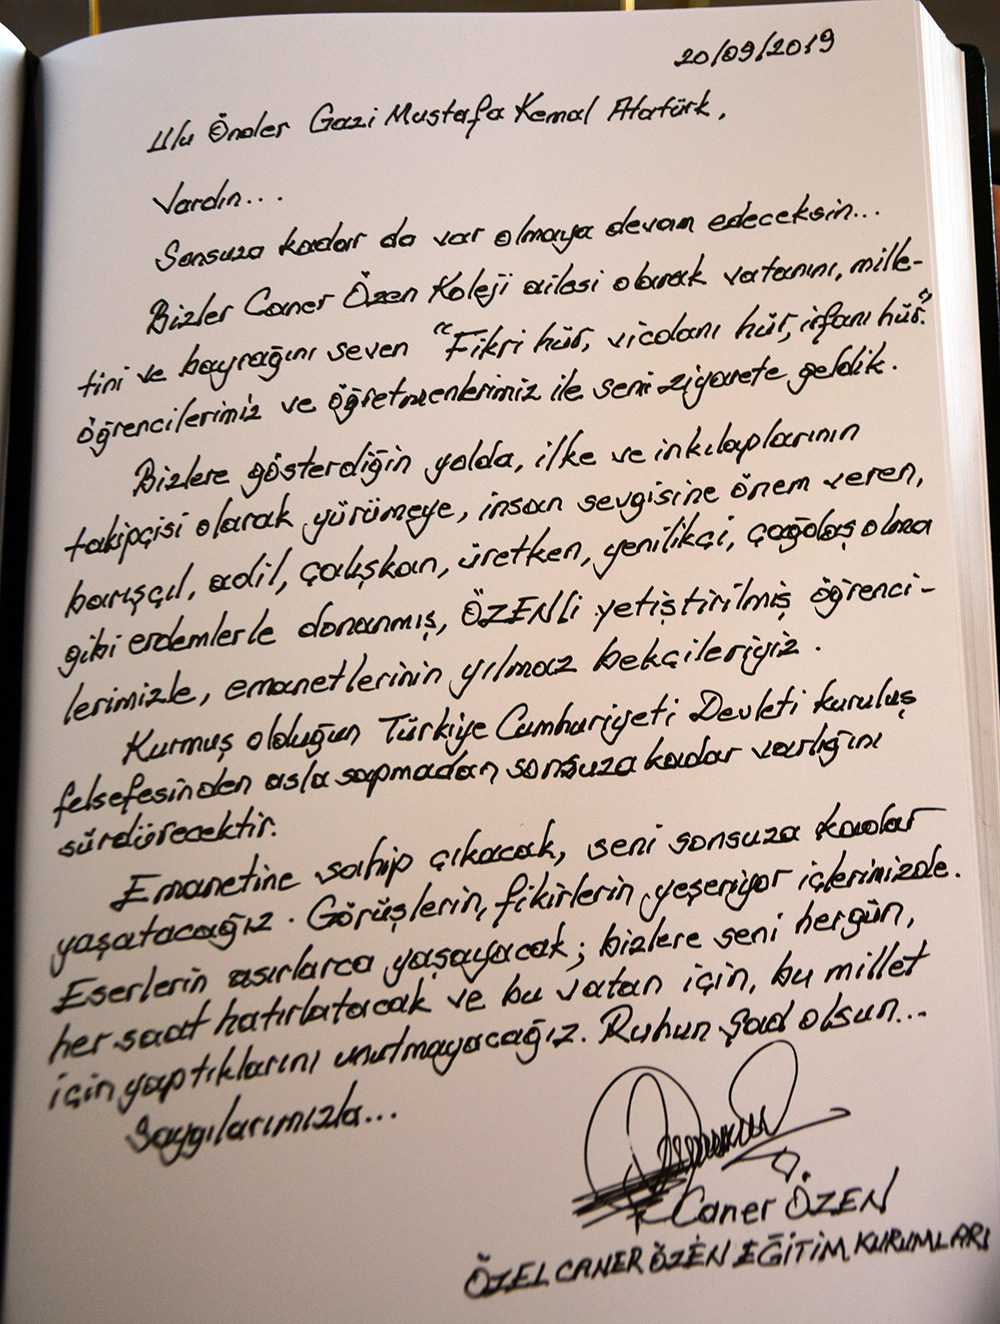 20/09/2019
Ulu Önder Gazi Mustafa Kemal Atatürk,
Vardın...
Sonsuza kadar da var olmaya devam edeceksin...
Bizler Caner Özen Koleji ailesi olarak vatanını, mille-
tini ve bayrağını seven "Fikri hür, vicdanı hür, irfanı hür."
öğrencilerimiz ve öğretmenlerimiz ile seni ziyarete geldik.
Bizlere gösterdiğin yolda, ilke ve inkılaplarının
takipçisi olarak yürümeye, insan sevgisine önem veren,
barışçıl, adil, çalışkan, üretken, yenilikçi, çağdaş olma
gibi erdemlerle donanmış, ÖZENLİ yetiştirilmiş öğrenci-
lerimizle, emanetlerinin yılmaz bekçileriyiz.
Kurmuş olduğun Türkiye Cumhuriyeti Devleti kuruluş
felsefesinden asla sapmadan sonsuza kadar varlığını
sürdürecektir.
Emanetine sahip çıkacak, seni sonsuza kadar
yaşatacağız. Görüşlerin, fikirlerin yeşeriyor içlerimizde.
Eserlerin asırlarca yaşayacak; bizlere seni hergün,
her saat hatırlatacak ve bu vatan için, bu millet
için yaptıklarını unutmayacağız. Ruhun Şad olsun...
Saygılarımızla...
Caner ÖZEN
ÖZEL CANER ÖZEN EĞİTİM KURUMLARI